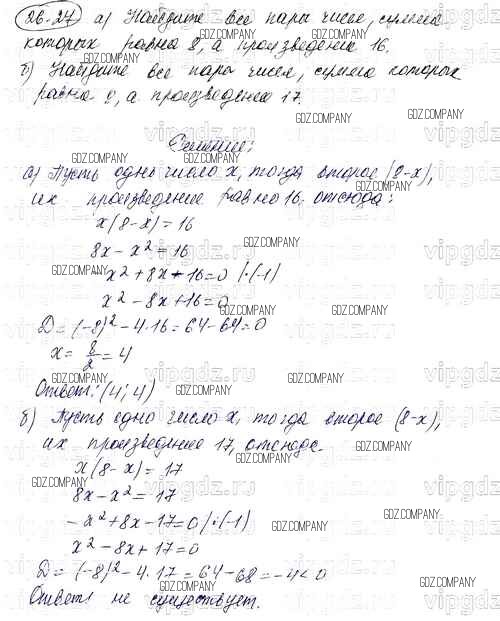 26.27 а) Найдите все пары чисел, сумма
которых равна 8, а произведение 16.
б) Найдите все пары чисел, сумма которых
равна 8, а произведение 17.
Решение:
а) Пусть одно число x, тогда второе (8-x),
их произведение равно 16, отсюда:
x(8-x)=16
8x-x²=16
-x²+8x-16=0 |·(-1)
x²-8x+16=0
D=(-8)²-4·16=64-64=0
x=8/2=4
Ответ: (4; 4)
б) Пусть одно число x, тогда второе (8-x),
их произведение 17, отсюда:
x(8-x)=17
8x-x²=17
-x²+8x-17=0 |·(-1)
x²-8x+17=0
D=(-8)²-4·17=64-68=-4<0
Ответ: не существует.
GDZ.COMPANY
vipgdz.ru